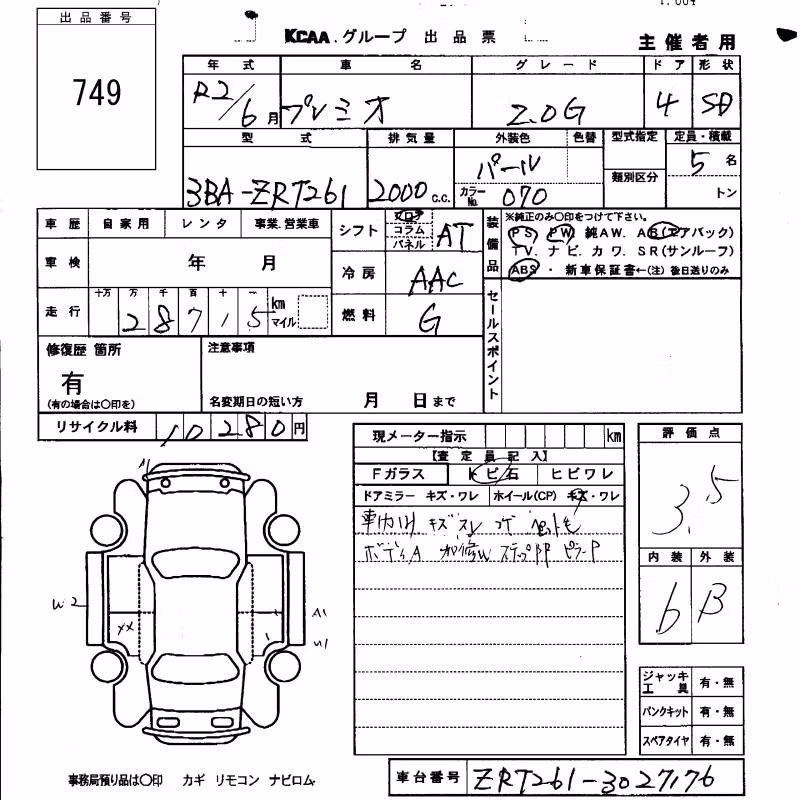 1.004
出品番号
749
KCAA.グループ 出品票
主催者用
年式 車名 グレード ドア 形状
R2/6月 プレミオ 2.0G 4 SD
型式 排気量 外装色 色替 型式指定 定員・積載
3BA-ZRT261 2000c.c. パール 類別区分 5名
カラーNo. 070 トン
車歴 自家用 レンタ 事業.営業車
シフト フロア コラム パネル AT
装備品
※純正のみ○印をつけて下さい。
PS PW 純AW. AB(エアバック)
TV. ナビ. カワ. SR(サンルーフ)
ABS ・ 新車保証書←(注)後日送りのみ
車検 年 月
冷房 AAC
走行 十万 万 千 百 十 一 km マイル
28715
燃料 G
セールスポイント
修復歴 箇所
有
(有の場合は○印を)
注意事項
名変期日の短い方 月 日まで
リサイクル料 10280円
現メーター指示 km
【査定員記入】
Fガラス トビ石 ヒビワレ
ドアミラー キズ・ワレ ホイール(CP) キズ・ワレ
車内 キズ スレ コゲ
ボディA 加修W ステップP ピラーP
評価点
3.5
内装 外装
6 B
A1
W2
XX
A1
W1
ジャッキ工具 有・無
パンクキット 有・無
スペアタイヤ 有・無
事務局預り品は○印 カギ リモコン ナビロム
車台番号 ZRT261-3027176